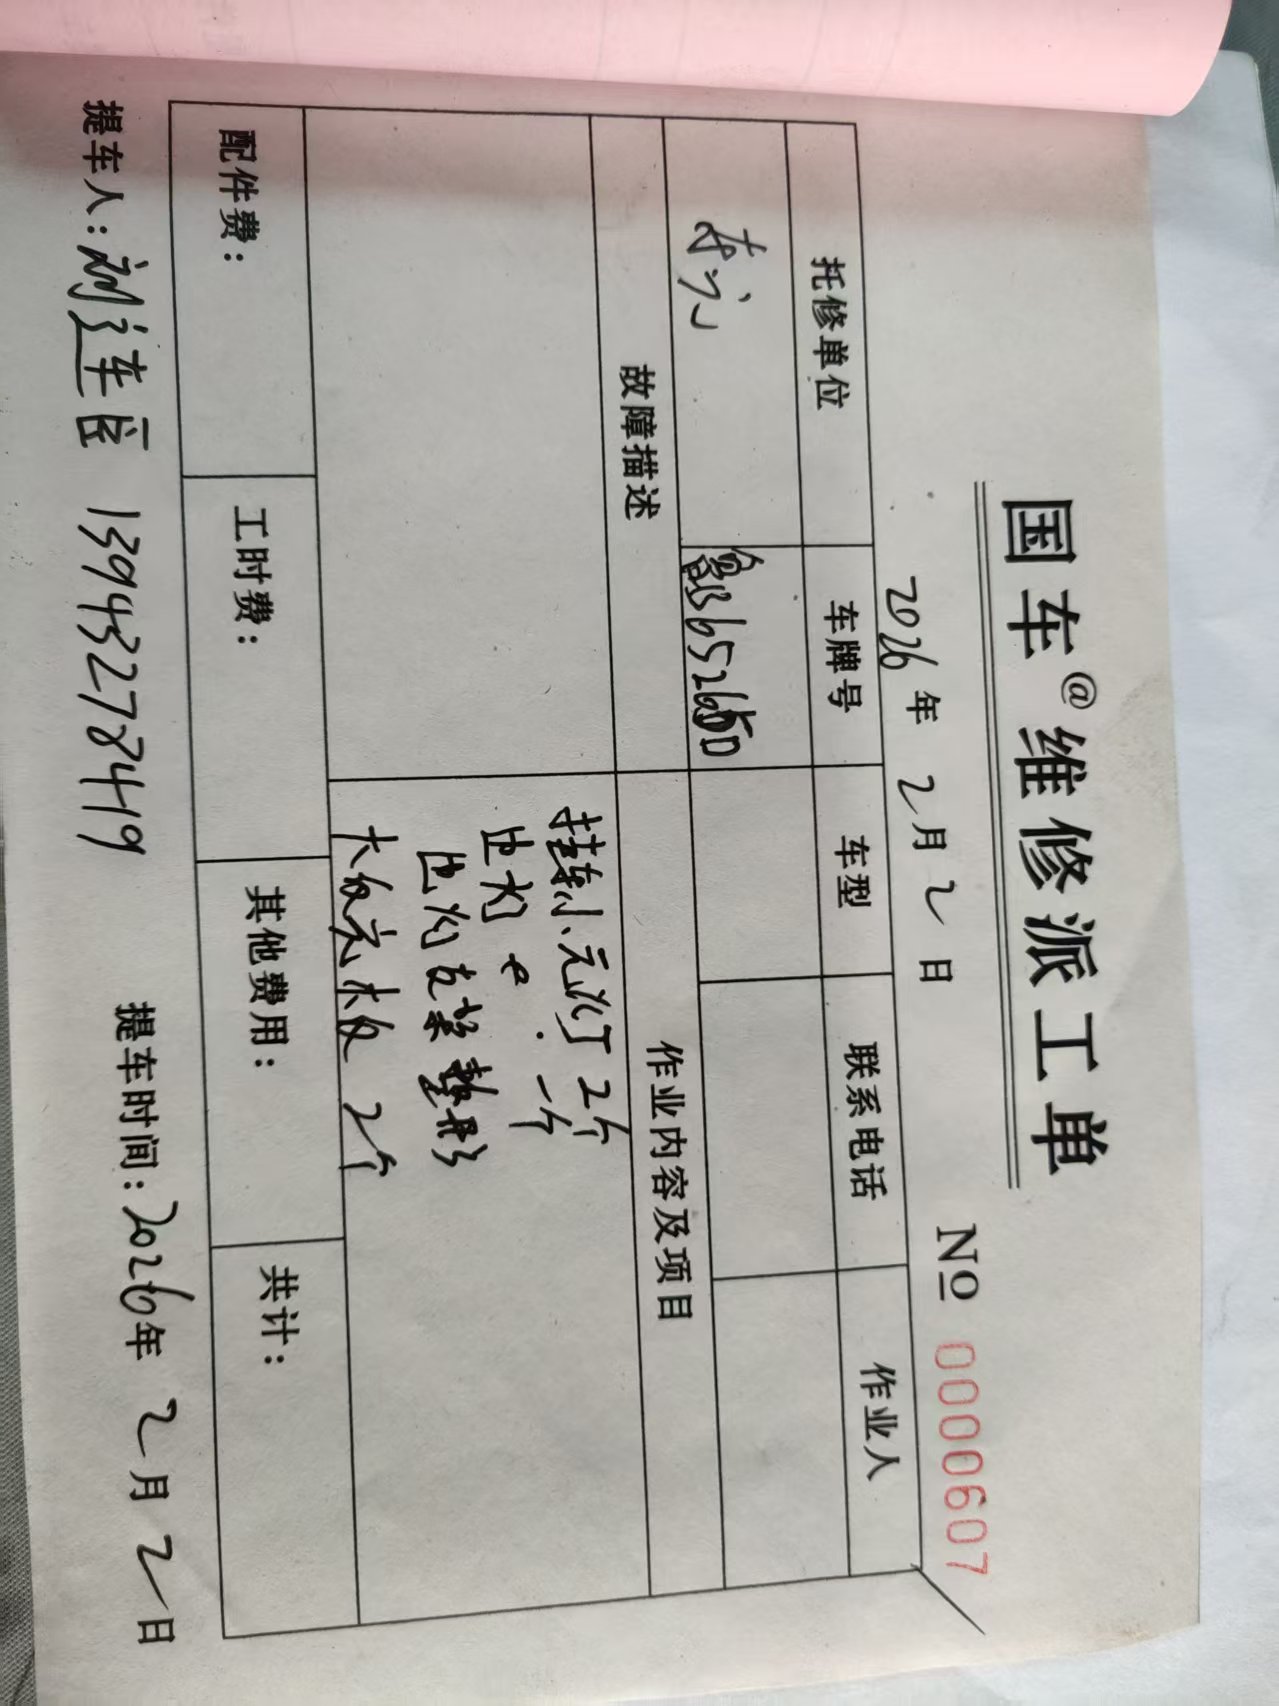 国车@维修派工单
2026年 2月2日 No 0000607
托修单位 车牌号 车型 联系电话 作业人
故障描述 作业内容及项目
挂车小元灯 2个
一个
支架整形
大板 2个
配件费： 工时费： 其他费用： 共计：
提车人：刘连臣 13943278419 提车时间：2026年 2月2日